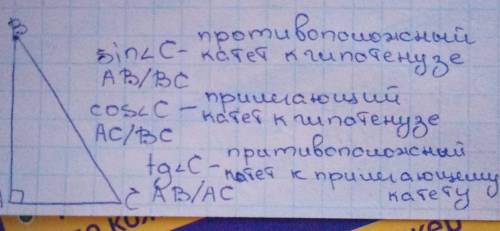 B
sin∠C - противоположный
катет к гипотенузе
AB/BC
cos∠C - прилегающий
катет к гипотенузе
AC/BC
tg∠C - притивоположный
катет к прилегающему
катету
AB/AC
C